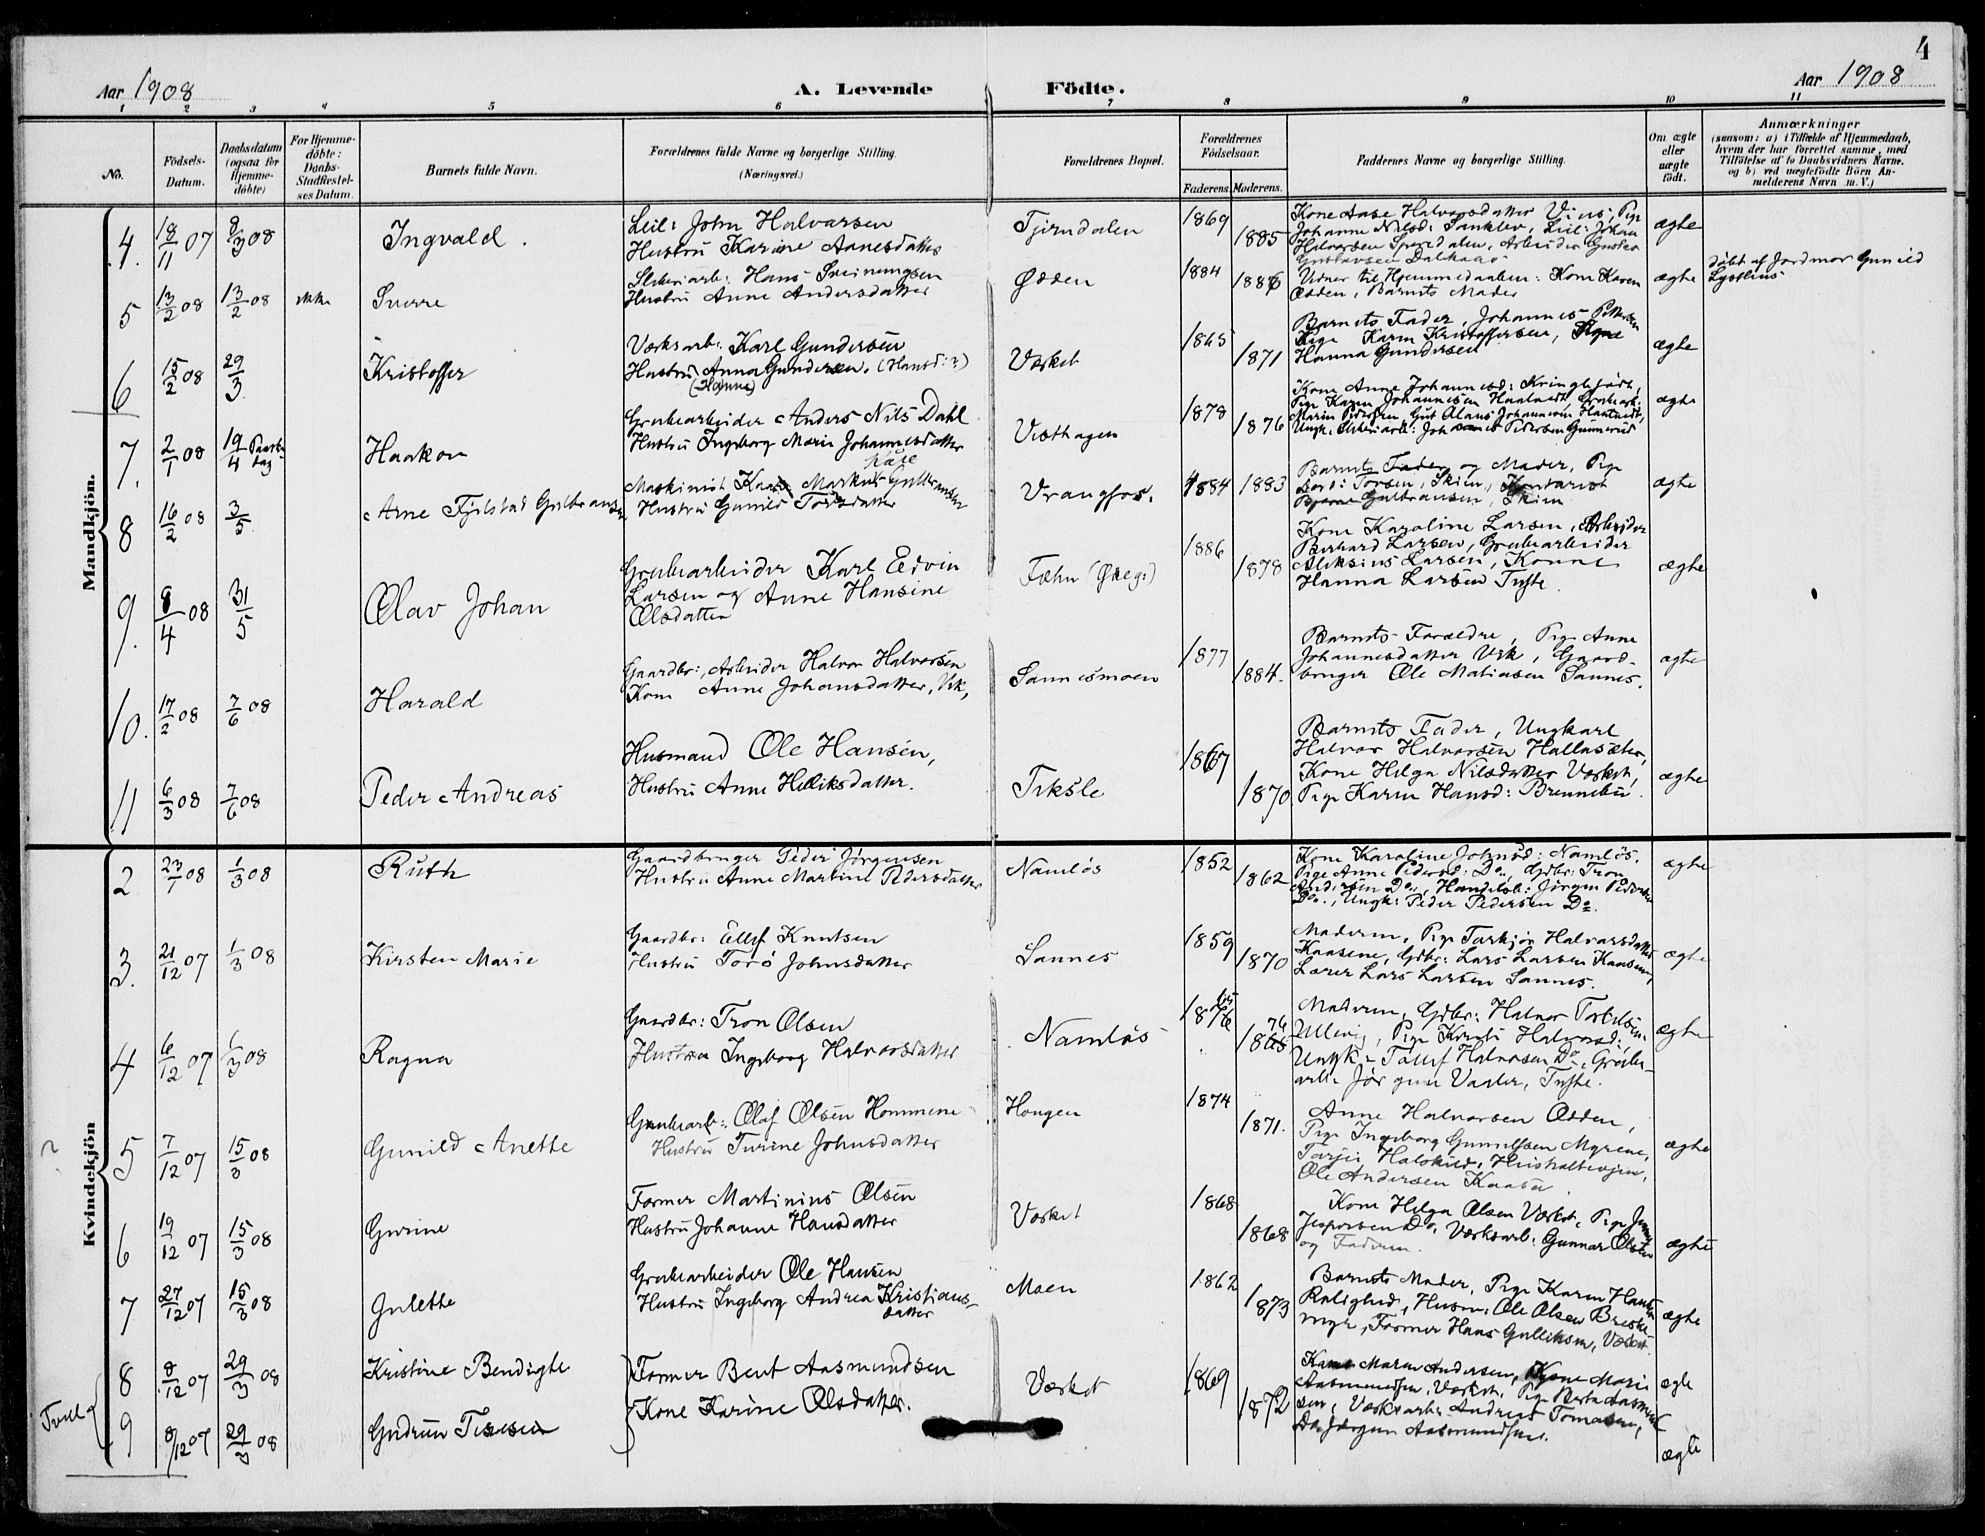 4
Aar 1908
A. Levende Födte.
Aar 1908
1 2 3 4 5 6 7 8 9 10 11
No.
Födsels-Datum.
Daabsdatum (ogsaa for Hjemme-döbte)
For Hjemme-döbte: Daabs-Stadfæstel-ses Datum.
Barnets fulde Navn.
Forældrenes fulde Navne og borgerlige Stilling. (Næringsvei.)
Forældrenes Bopæl.
Forældrenes Födselsaar.
Faderens. Moderens.
Faddernes Navne og borgerlige Stilling.
Om ægte eller uægte födt.
Anmærkninger
(saasom: a) i Tilfælde af Hjemmedaab, hvem der har forrettet samme, med Tilföielse af to Daabsvidners Navne. og b) ved uægtefödte Börn Anmelderens Navn m. V.)
Mandkjön.
4. 18/11 07 8/3 08 Ingvald.
Leil: John Halvarsen
Hustru Karine Aanesdatter
Tjerndalen 1869 1885
Kone Aase Halvorsdatter
Johanne Nilsd: Sanklev, Leil: Johan
Halvorsen
Gustavsen Dalhaas
ægte
5 13/2 08 13/2 08 ikke Sverre
Sliberiarb: Hans Sveinungsen
Hustru Anne Andersdatter
Ødden 1884 1886
Vidner til Hjemmedaaben: Kone Karen
Ødden, Barnets Moder
ægte
döbt af Jordmor Gunild
Lystlius
6 15/2 08 29/3 Kristoffer
Værksarb: Karl Gundersen
Hustru Anna Gundersen. (Hansd:?)
(Hanna)
Værket 1865 1871
Barnets Fader, Johannes Pettersen
Pige Karen Kristoffersen,
Hanna Gundersen
ægte
7. 2/1 08 19/4 Paaskedag Haakon
Grubearbeider Anders Nils Dahl
Hustru Ingeborg Marie Johannesdatter
Vesthagen 1878 1876
Kone Anne Johannesd: Kringlefødt,
Pige Karen Johannesen Haatvedt, Grubearb:
Marius Pedersen, Gut Olaus Johannesen Haatvedt,
Ungk: Sliberiarb: Johannes Pedersen Gunnerud
ægte
8 16/2 08 3/5 Arne Fjeldstad Gulbransen
Kåre
Maskinist Markus Gulbransen
Hustru Gunild Torsdatter
Vrangfos. 1884 1883
Barnets Fader og Moder, Pige
Torsen, Skien, Kontorist
Bjarne Gulbransen, Skien
ægte
9. 8/4 08 31/5 Olav Johan
Grubearbeider Karl Edvin
Larsen og Anne Hansine
Olsdatter
Fæhn 1886 1878
Kone Karoline Larsen, Arbeider
Berhard Larsen, Grubearbeider
Aleksius Larsen, Konne
Hanna Larsen Tufte.
ægte
10. 17/2 08 7/6 08 Harald
Gaardbr:, Arbeider Halvor Halvorsen
Kone Anne Johansdatter, Vek,
Sannesmoen 1877 1884.
Barnets Forældre, Pige Anne
Johannesdatter Vek, Gaard-
bruger Ole Matiasen Sannes.
ægte
11 6/3 08 7/6 08 Peder Andreas
Husmand Ole Hansen,
Hustru Anne Helliksdatter.
Teksle 1867 1870
Barnets Fader, Ungkarl
Halvor Halvorsen Hallasæter,
Kone Helga Nilsdatter Værket,
Pige Karen Hansd: Brennebu.
ægte
Kvindekjön
2 23/1 08 1/3 08 Ruth
Gaardbruger Peder Jørgensen
Hustru Anne Martine Pedersdatter
Namløs 1852 1862
Kone Karoline Johnsd: Namløs,
Pige Anne Pedersd: Do., Gdbr: Tron
Andersen Do., Handelsb: Jørgen Pedersen
Do., Ungk: Peder Pedersen Do.
ægte
3. 21/12 07 1/3 08 Kirsten Marie
Gaardbr: Ellef Knutsen
Hustru Torø Johnsdatter
Sannes 1859 1870
Moderen, Pige Torkjør Halvorsdatter
Kaasene, Gdbr: Lars Larsen Kaasene,
Lærer Lars Larsen Sannes.
ægte
4 6/12 07 1/3 08 Ragna
Gaardbr: Tron Olsen
Hustru Ingeborg Halvorsdatter
Namløs 1876 65 1865 76
Moderen, Gdbr: Halvor Torkelsen
Ullevig, Pige Kirsti Halvorsd:
Ungk: Tollef Halvorsen Do., Grube-
arb: Jørgen Vader, Tufte.
ægte
5 7/12 07 15/3 08 Gunild Anette
Grubearb: Olaf Olsen Hommene
Hustru Turine Johnsdatter
Haugen 1874 1871.
Anne Halvorsen Ødden,
Pige Ingeborg Gunulfsen Myrene,
Tarjei Halskild,
Ole Andersen Kaasa.
ægte
6 19/12 07 15/3 08 Gurine
Former Martinius Olsen
Hustru Johanne Hansdatter
Værket 1868 1868
Kone Helga Olsen Værket, Pige Jenny
Jespersen Do, Værksarb: Gunnar Olsen
og Faderen.
ægte
7 27/12 07 15/3 08 Gulette
Grubearbeider Ole Hansen
Hustru Ingeborg Andrea Kristians-
datter
Moen 1862 1873
Barnets Moder, Pige Karen Hansen
Rolighed, Husm: Ole Olsen Breske-
myr, Former Hans Gulliksen, Værket
ægte
Tvill
8 8/12 07 29/3 08 Kristine Bendigte
Former Bent Aasmundsen
Kone Karine Olsdatter.
Værket 1869 1872
Kone Maren Andersen, Marie
Aasmundsen, Værket, Pige Berta Aasmund
sen, Værksarb: Andreas Tomasen,
Do. Jørgen Aasmundsen.
ægte
9 8/12 07 29/3 08 Gudrun
ægte